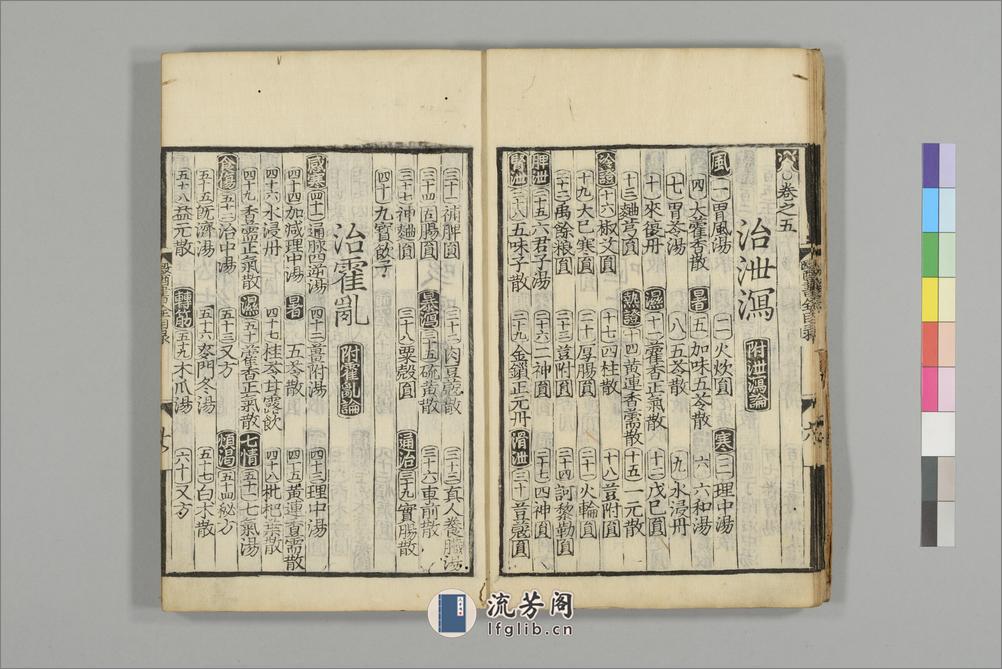 卷之五
治泄瀉 附泄瀉論
風 一 胃風湯 二 火炊圓 寒 三 理中湯
四 大藿香散 暑 五 加味五苓散 六 六和湯
七 胃苓湯 八 五苓散 九 水浸丹
十 來復丹 濕 十一 藿香正氣散 十二 戊己圓
十三 麯芎圓 熱證 十四 黃連香薷散 十五 一元散
冷證 十六 椒艾圓 十七 四柱散 十八 荳附圓
十九 大已寒圓 二十 厚腸圓 二十一 火輪圓
二十二 禹餘粮圓 二十三 荳附圓 二十四 訶黎勒圓
脾泄 二十五 六君子湯 二十六 二神圓 二十七 四神圓
腎泄 二十八 五味子散 二十九 金鎖正元丹 滑泄 三十 荳蔻圓
三十一 補脾圓 三十二 肉豆蔻散 三十三 真人養臟湯
三十四 固腸圓 暴瀉 三十五 硫黃散 三十六 車前散
三十七 神麯圓 三十八 粟殼圓 通治 三十九 實腸散
四十 九寶飲子
治霍亂 附霍亂論
感寒 四十一 通脉四逆湯 四十二 薑附湯 四十三 理中湯
四十四 加減理中湯 暑 五苓散 四十五 黃連香薷散
四十六 水浸丹 四十七 桂苓甘露飲 四十八 枇杷葉散
四十九 香薷正氣散 濕 五十 藿香正氣散 七情 五十一 七氣湯
食傷 五十二 治中湯 五十三 又方 煩渴 五十四 秘方
五十五 旣濟湯 五十六 麥門冬湯 五十七 白朮散
五十八 益元散 轉筋 五十九 木瓜湯 六十 又方
流芳阁
lfglib.cn